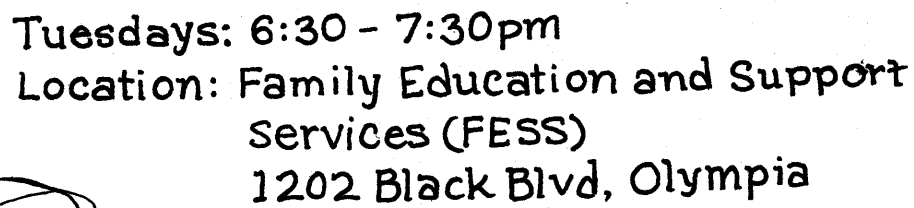 Tuesdays: 6:30 - 7:30pm
Location: Family Education and Support
Services (FESS)
1202 Black Blvd, Olympia